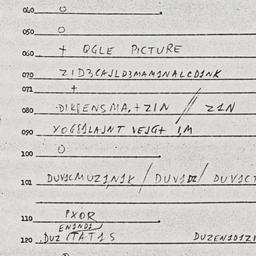 040 O
050 O
060 + QGLE PICTURE
070 ZID3CAJLD3MAMINALCDINK
071 +
080 DIKEENSMA,+ZIN // ZIN
090 YOGEILAJNT VEJG+ I,M
100 O
101 DUVICMUZ,NIK / DUVIDZ / DUVICT
110 PXOR
ENINDI
120 DUZ TATIS DUZENIDIZ